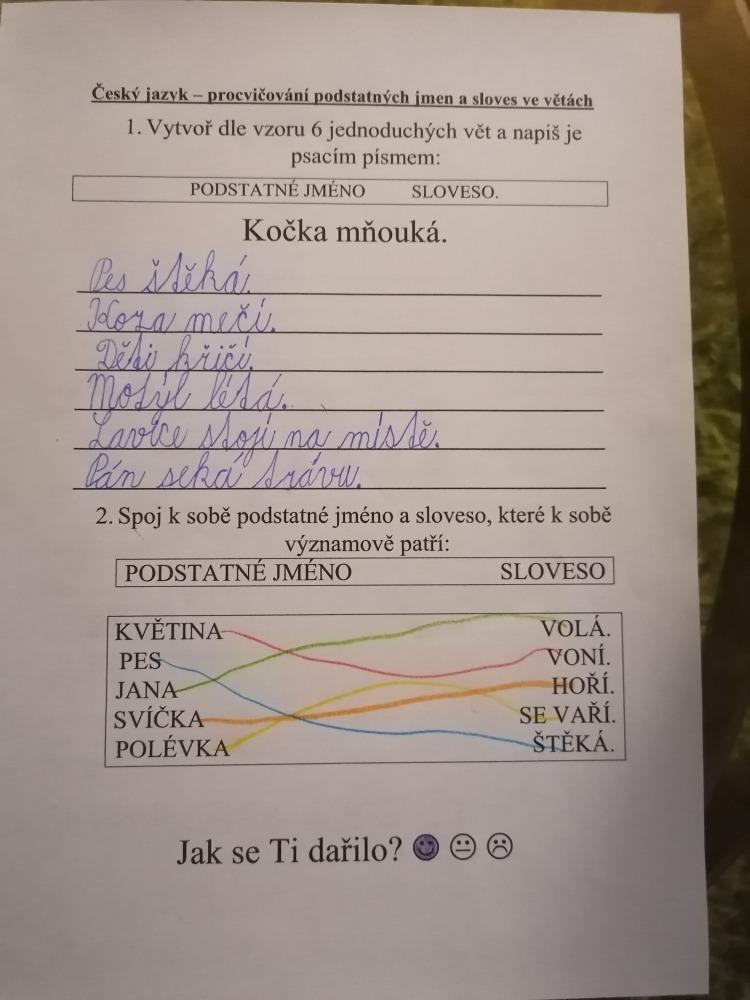 Český jazyk – procvičování podstatných jmen a sloves ve větách
1. Vytvoř dle vzoru 6 jednoduchých vět a napiš je
psacím písmem:
PODSTATNÉ JMÉNO SLOVESO.
Kočka mňouká.
Pes štěká.
Koza mečí.
Děti křičí.
Motýl létá.
Lavice stojí na místě.
Pán seká trávu.
2. Spoj k sobě podstatné jméno a sloveso, které k sobě
významově patří:
PODSTATNÉ JMÉNO SLOVESO
KVĚTINA VOLÁ.
PES VONÍ.
JANA HOŘÍ.
SVÍČKA SE VAŘÍ.
POLÉVKA ŠTĚKÁ.
Jak se Ti dařilo?